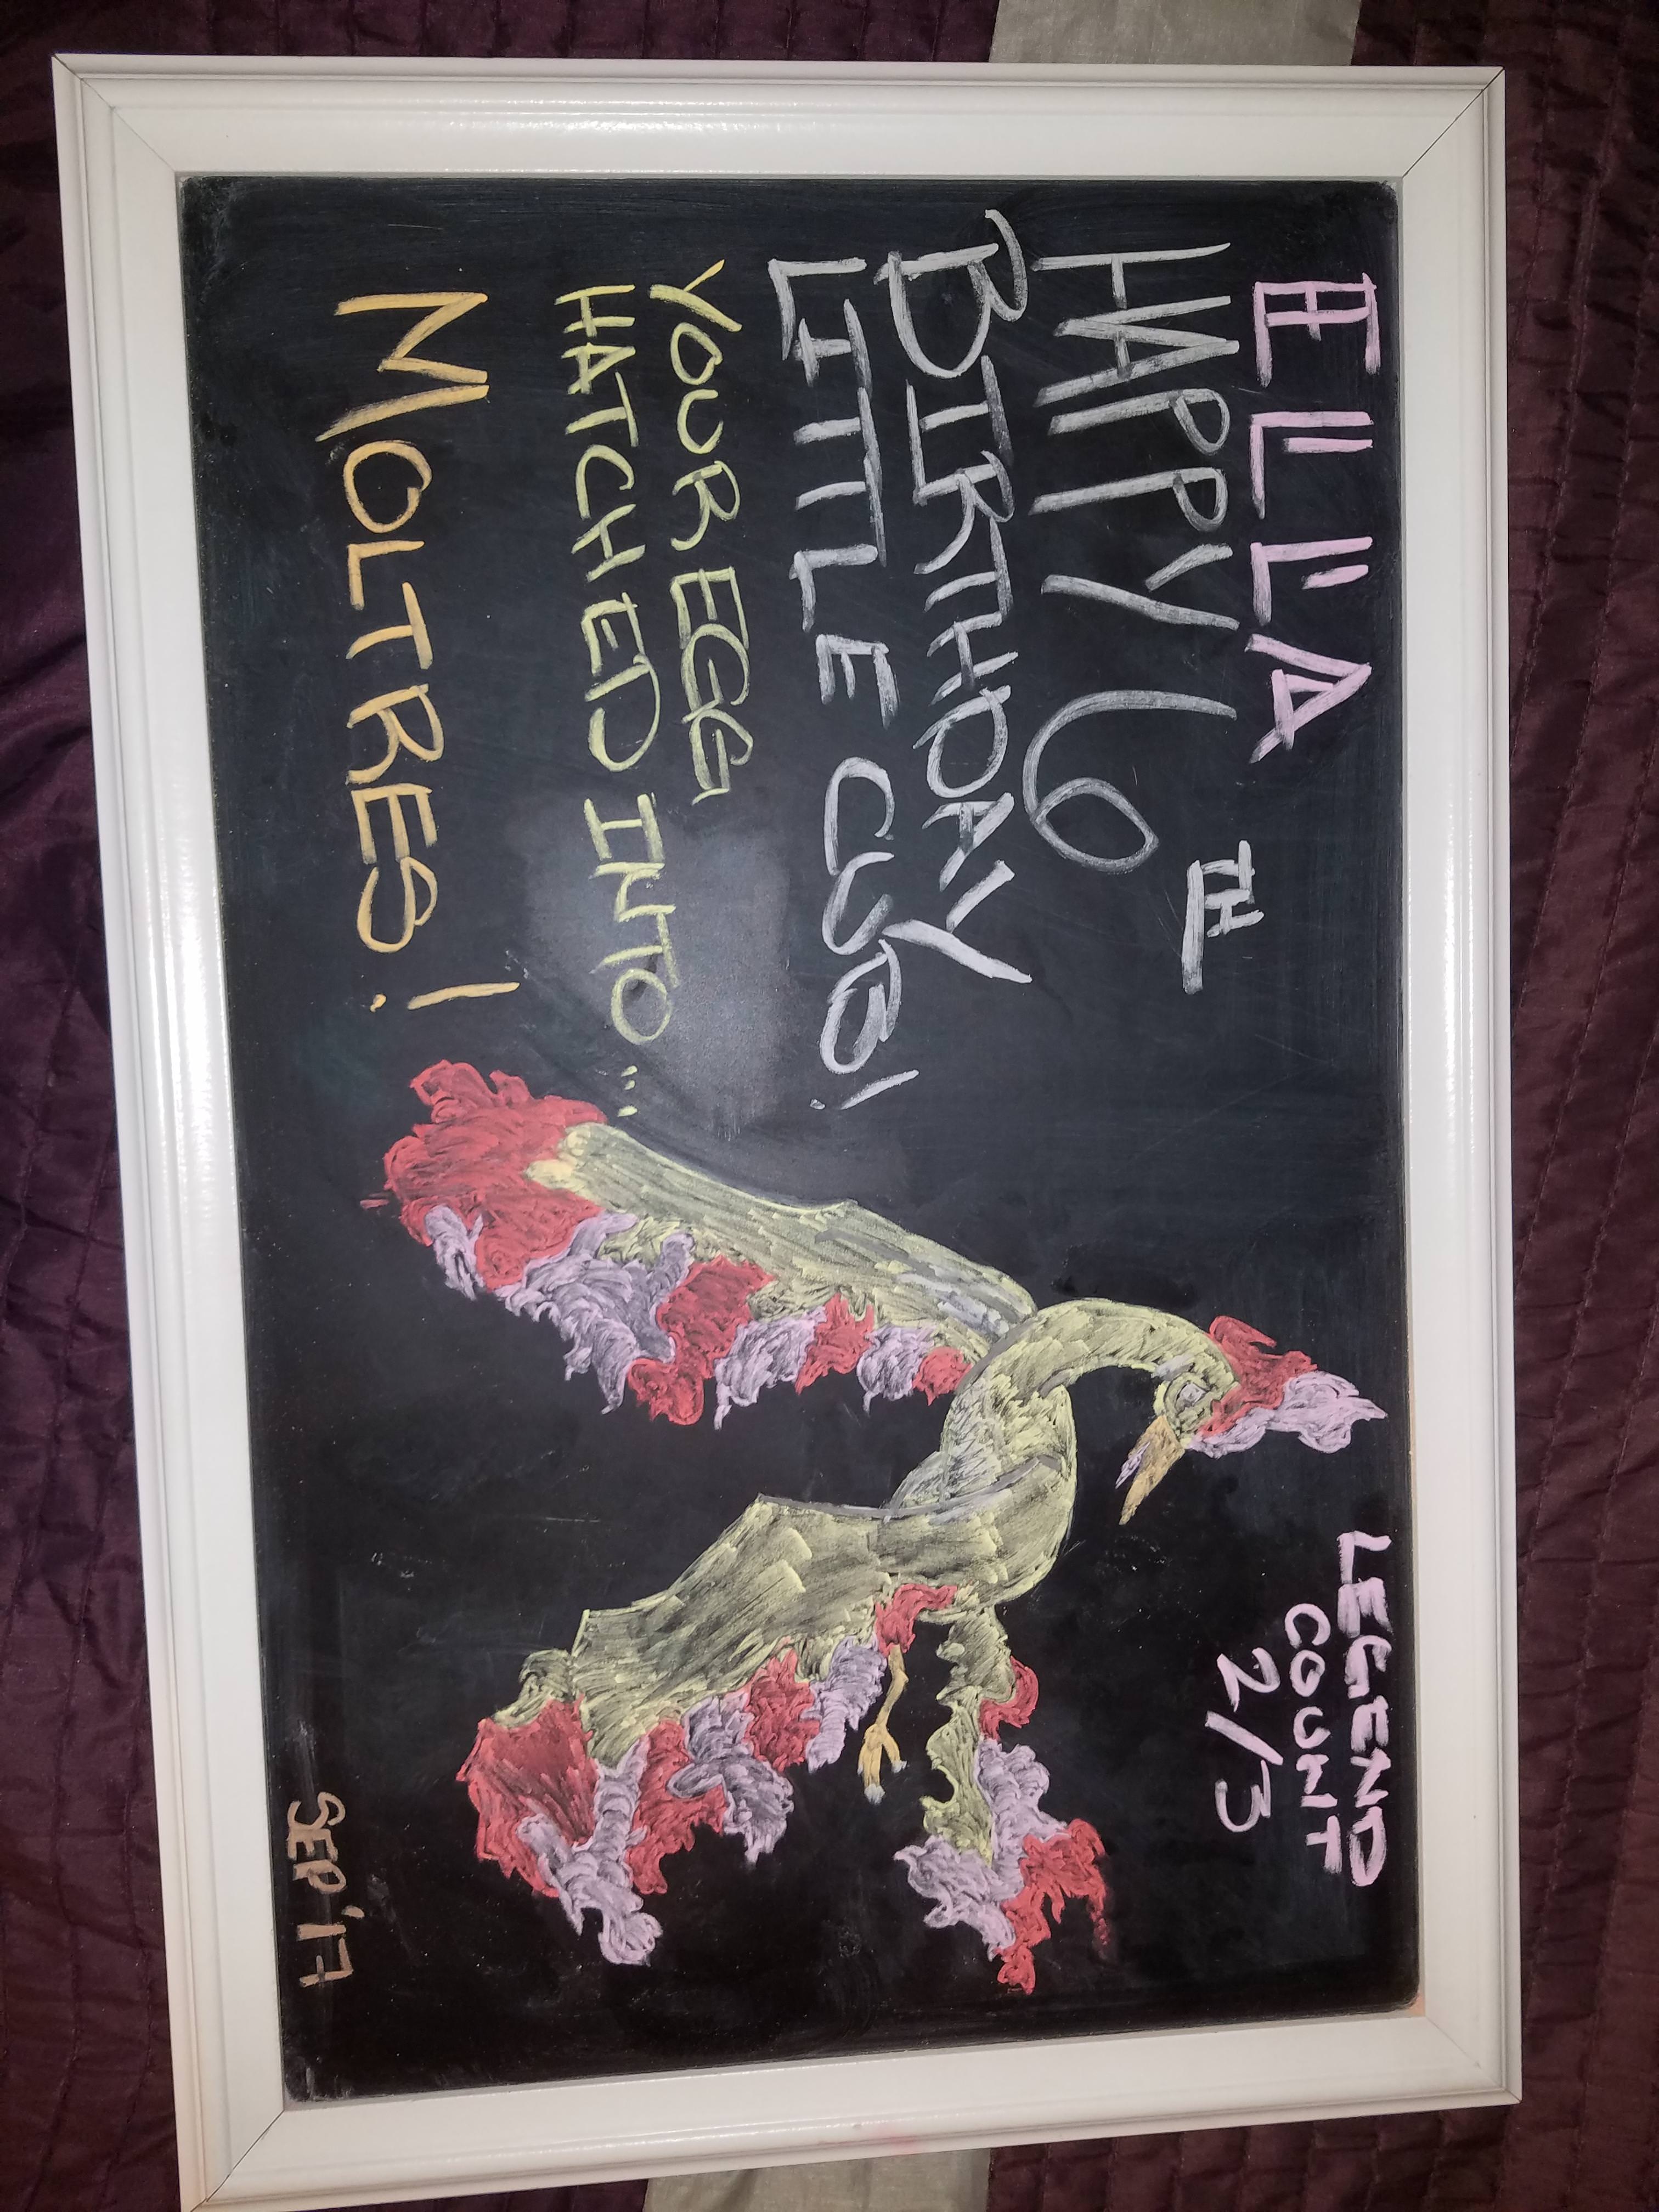 ELLA
HAPPY 6TH
BIRTHDAY
LITTLE CUB!
YOUR EGG
HATCHED INTO...
MOLTRES!
LEGEND
COUNT
2/3
SEP '17